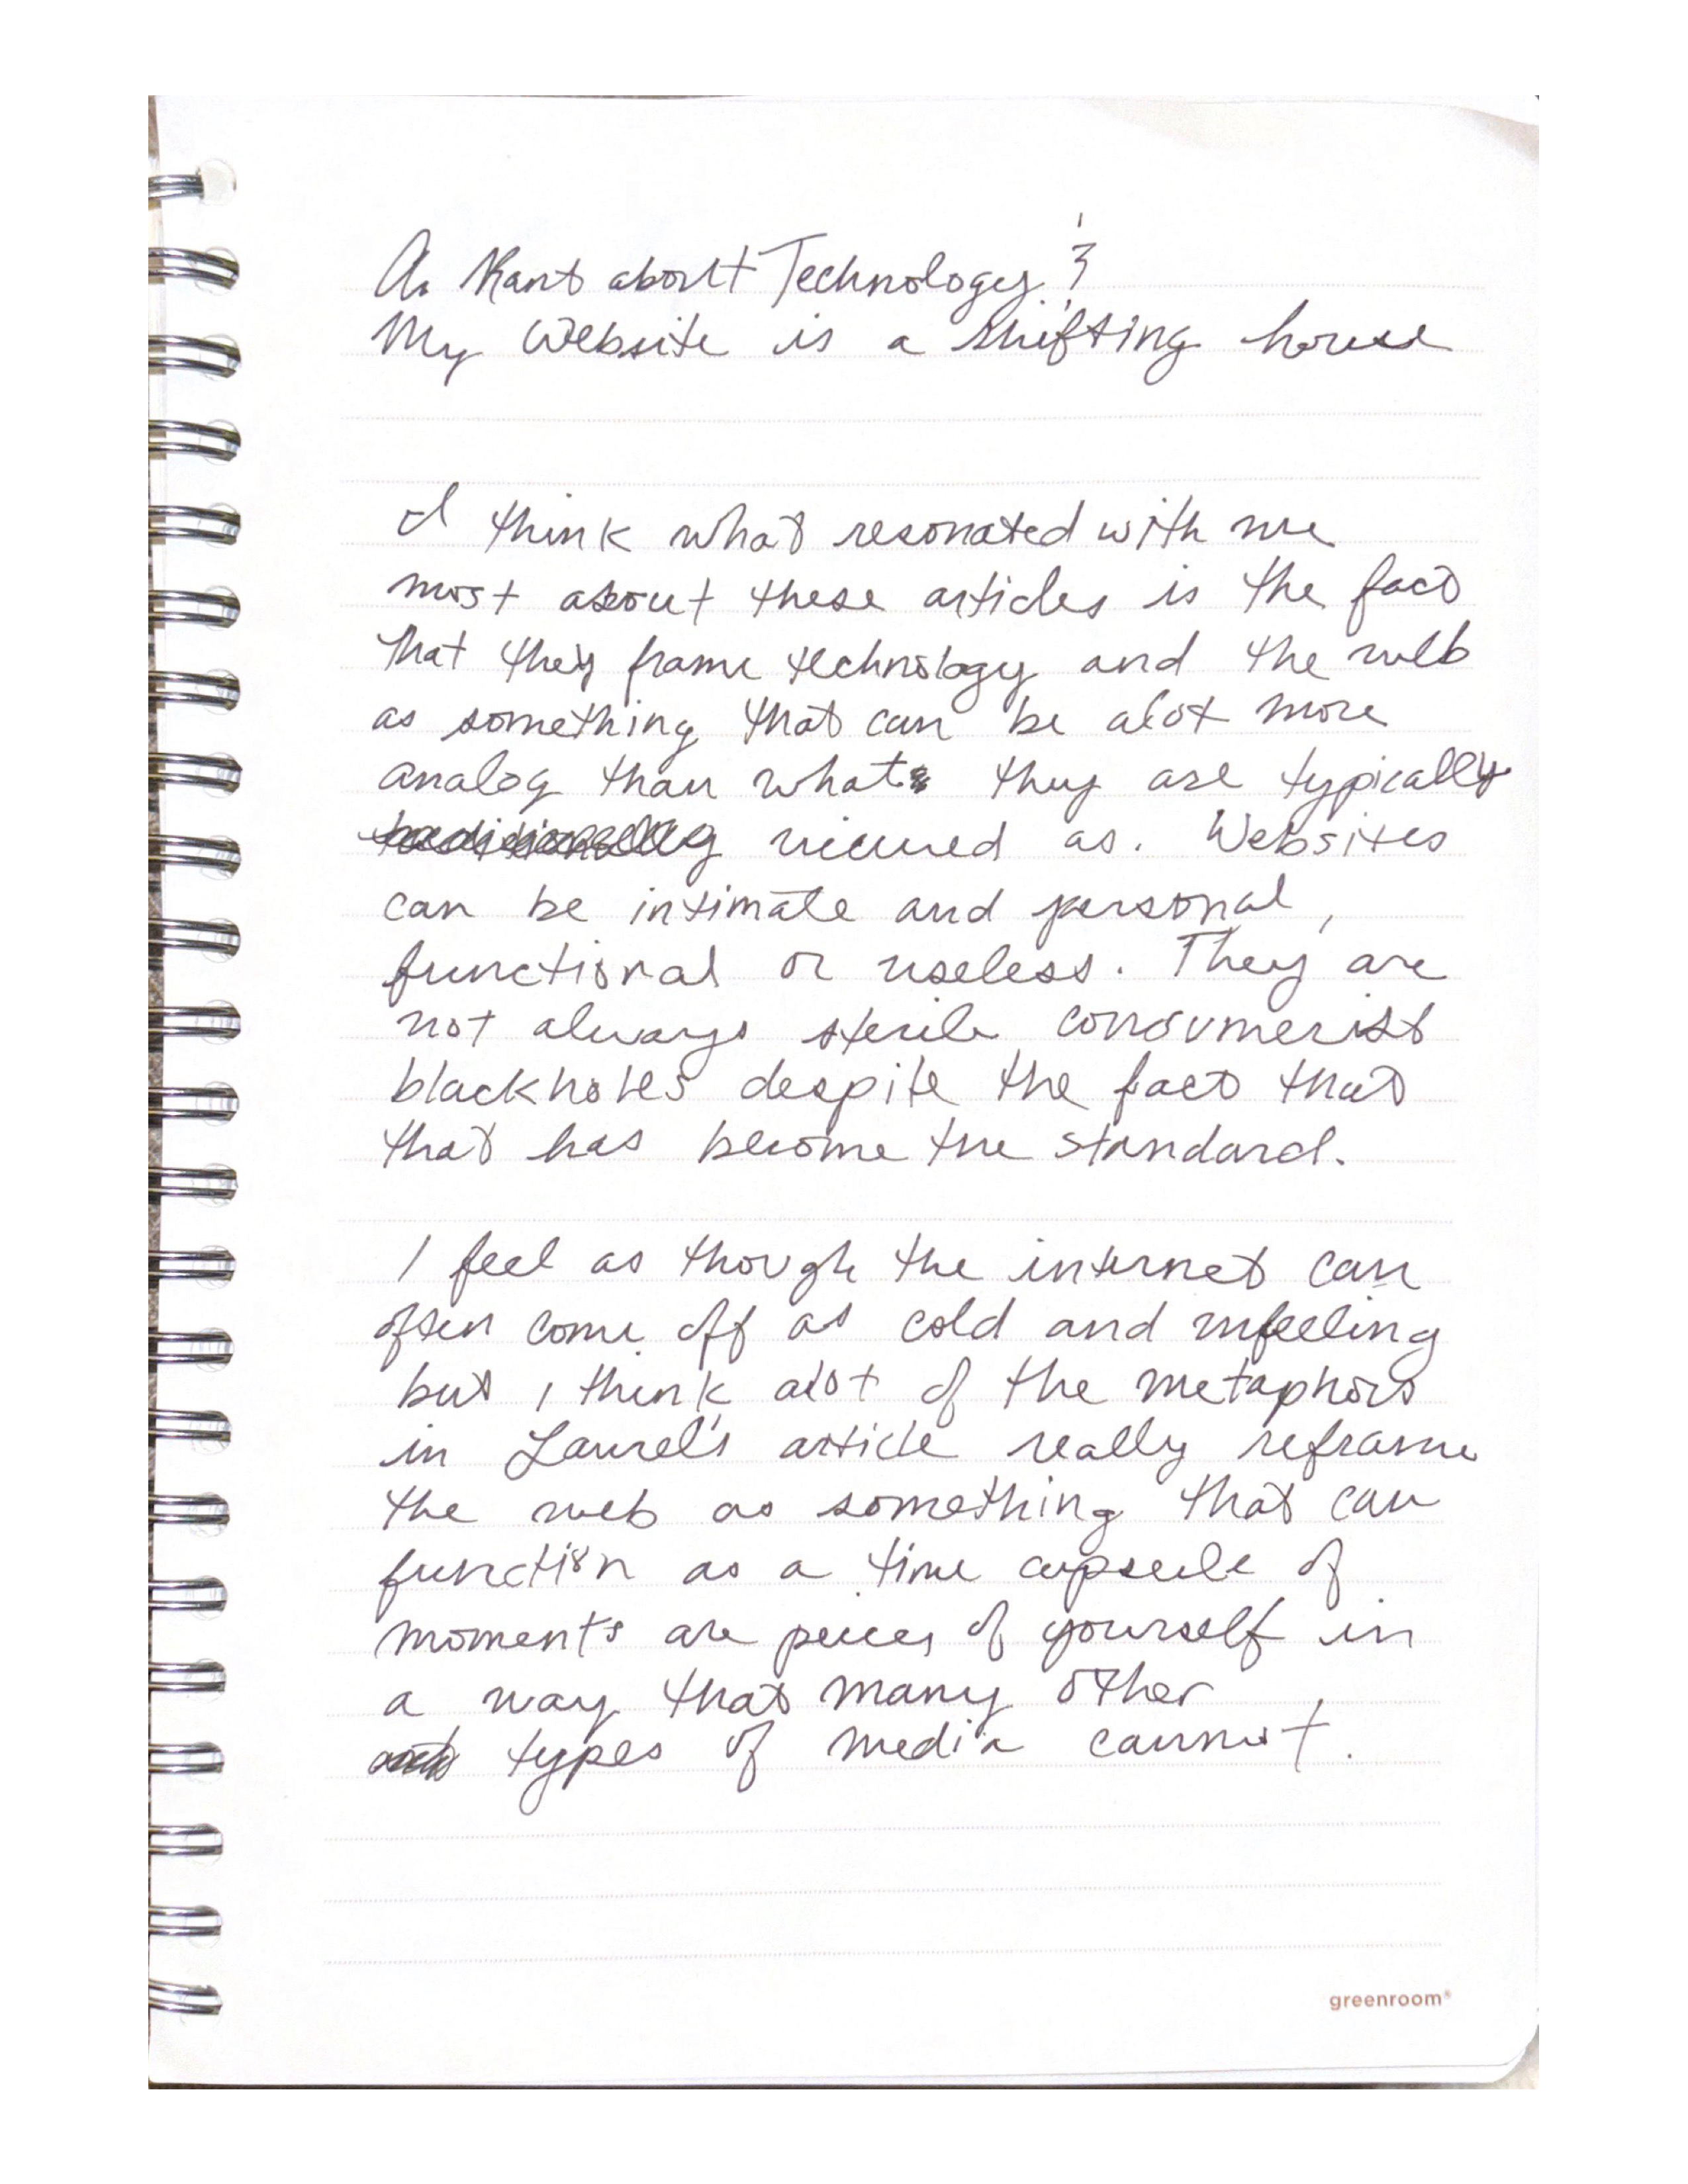 A Rant about Technology &
My Website is a shifting house
I think what resonated with me
most about these articles is the fact
that they frame technology and the web
as something that can be alot more
analog than what they are typically
traditionally viewed as. Websites
can be intimate and personal,
functional or useless. They are
not always sterile consumerist
blackholes despite the fact that
that has become the standard.
I feel as though the internet can
often come off as cold and unfeeling
but I think alot of the metaphors
in Laurel's article really reframe
the web as something that can
function as a time capsule of
moments are peices of yourself in
a way that many other
types of media cannot.
greenroom®